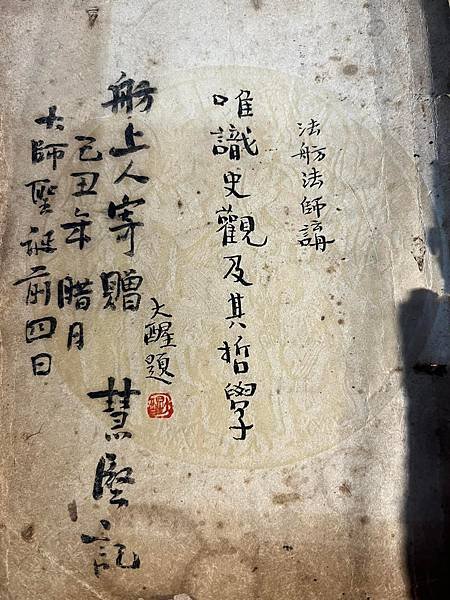 法舫法師講
唯識史觀及其哲學
大醒題
舫上人寄贈 慧堅記
己丑年腊月
大師聖誕前四日